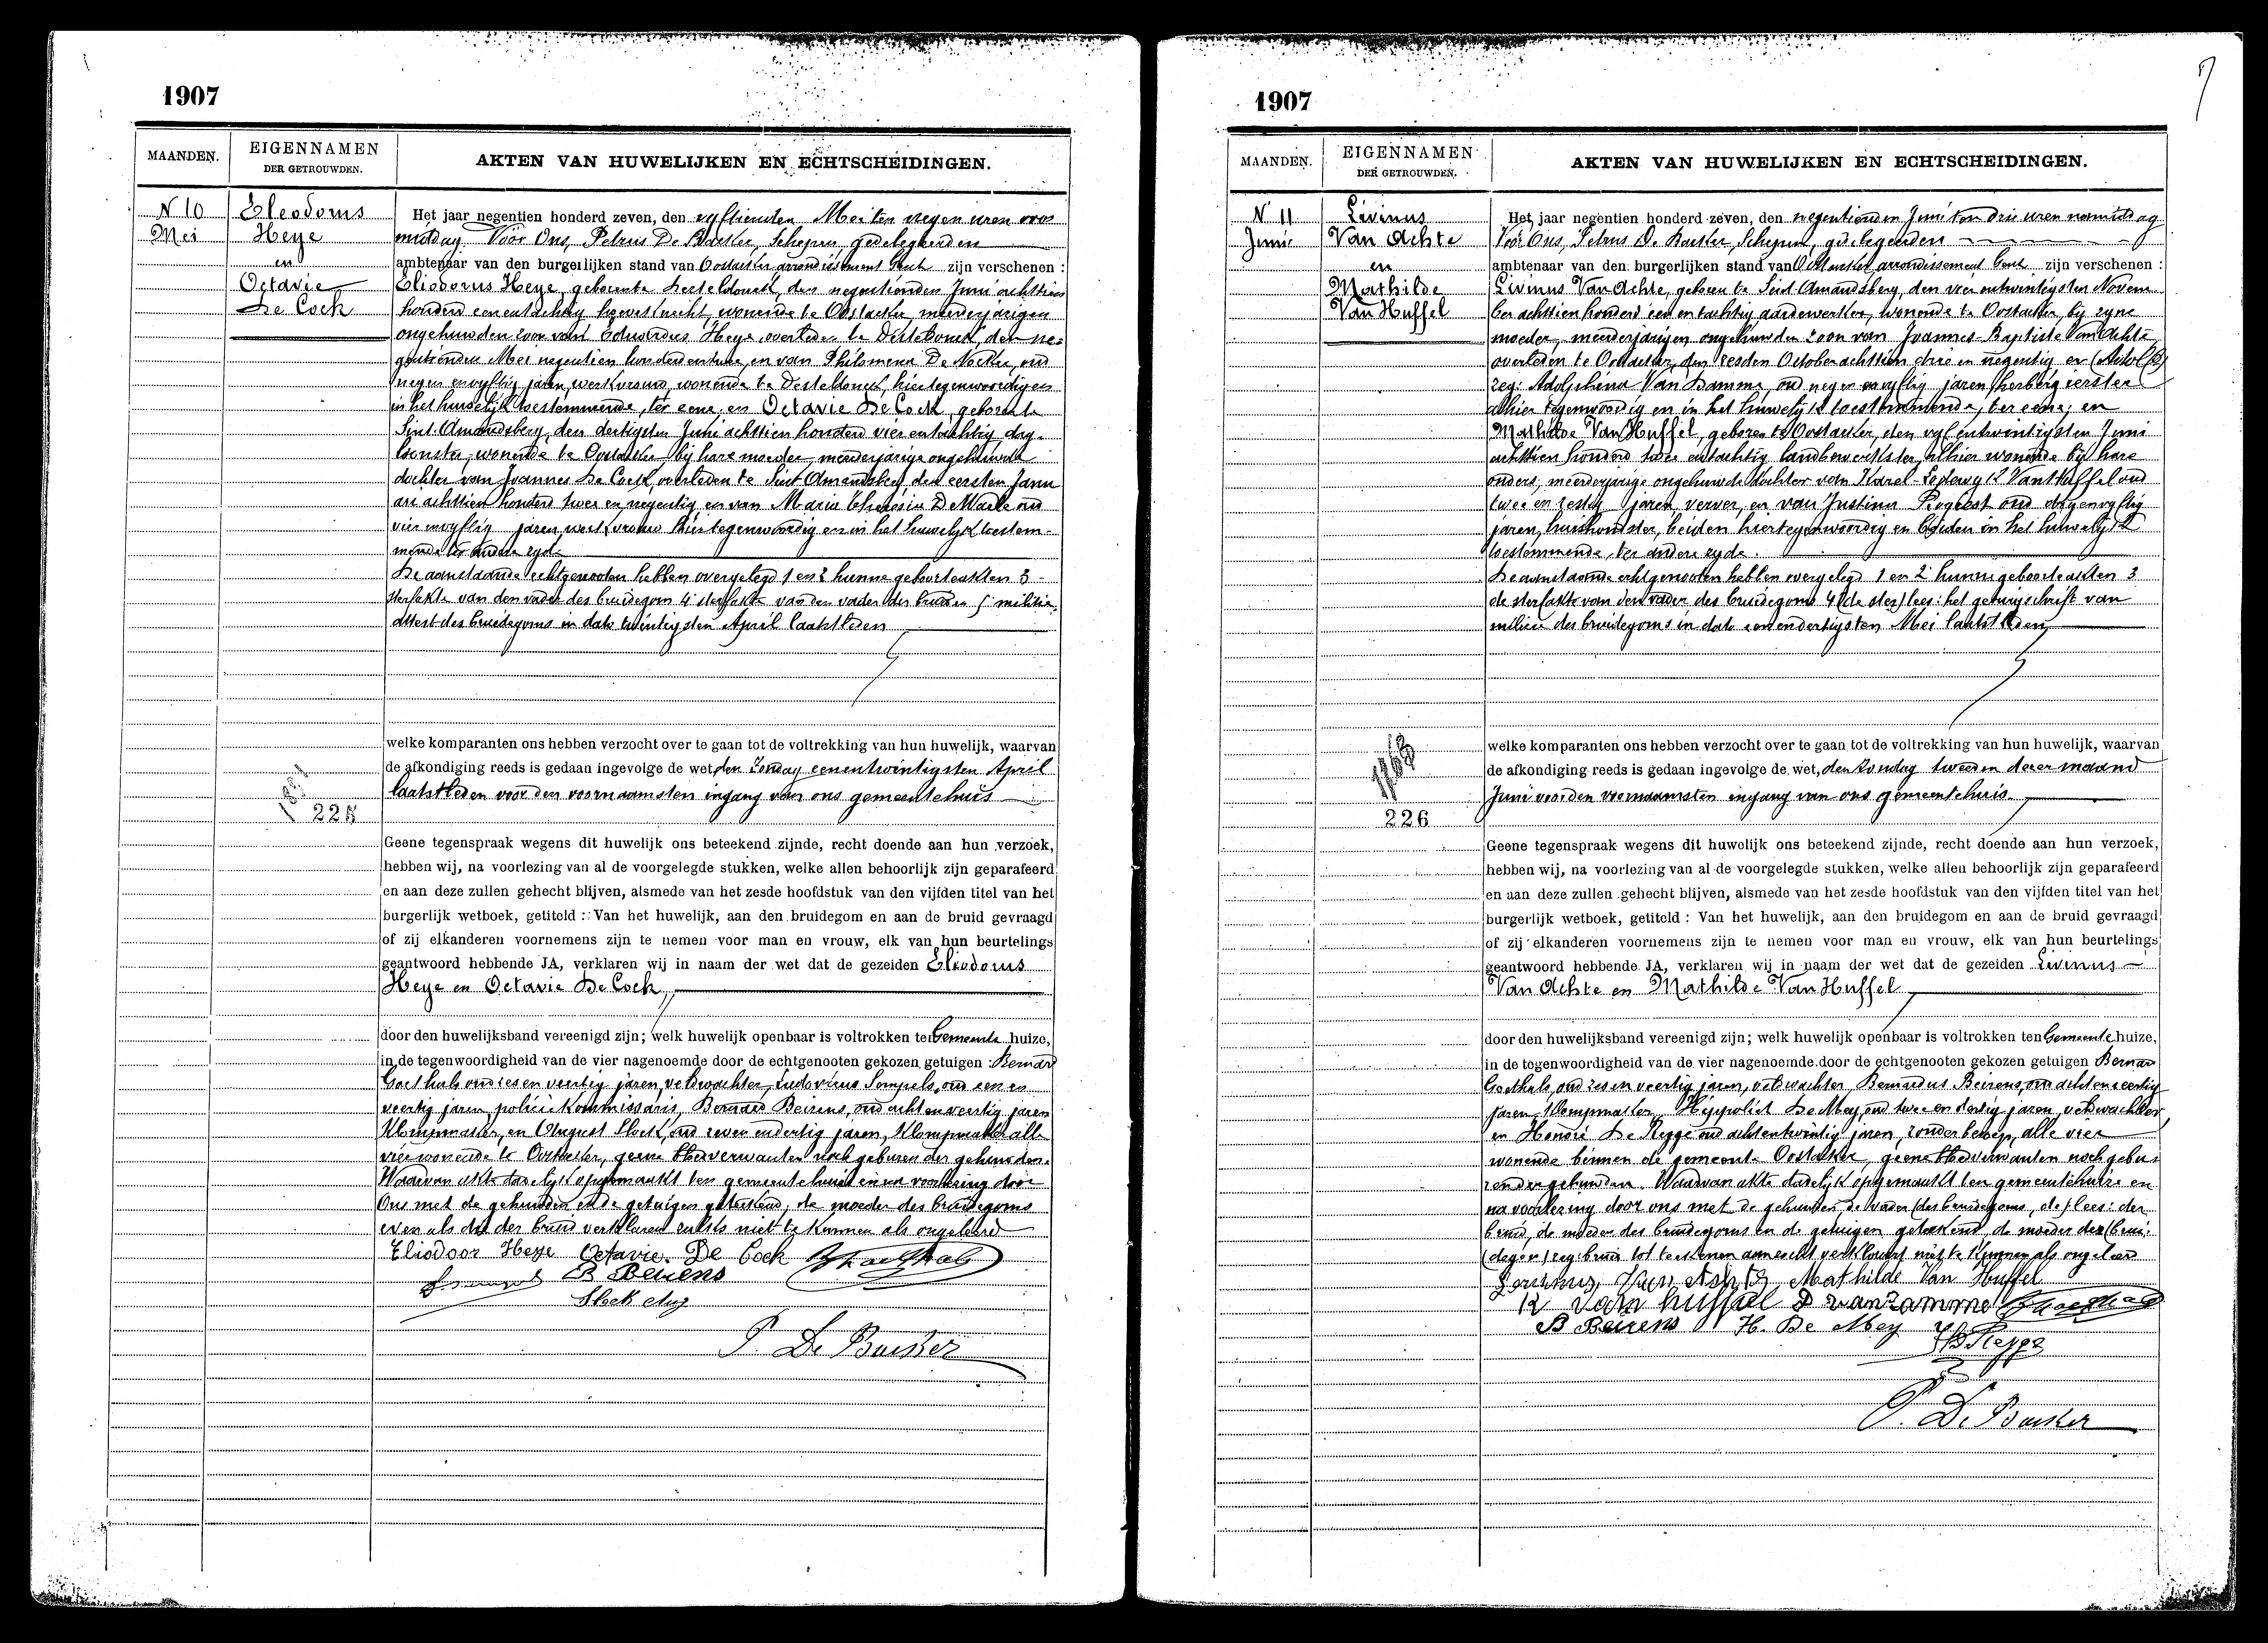 1907
MAANDEN.
EIGENNAMEN
DER GETROUWDEN.
AKTEN VAN HUWELIJKEN EN ECHTSCHEIDINGEN.
N 10
Mei
Eleodorus
Heye
en
Octavie
De Cock
Het jaar negentien honderd zeven, den vyftiensten Mei ten negen uren voor
middag Voor Ons, Petrus De Baesker, Schepen, gedelegeerden
ambtenaar van den burgerlijken stand van Oostacker arrondissement Gent zijn verschenen :
Eliodorus Heye, geboren te Desteldonck, den negentienden Juni achttien
honderd eenentachtig, wonende te Oostacker, meerderjarigen
ongehuwden zoon van Eduardus Heye, overleden te Desteldonck, den ne=
gentienden Mei negentien honderd en van Philomena De Nockere, oud
negen en vyftig jaren, werkvrouw, wonende te Desteldonck, hiertegenwoordig en
in het huwelijk toestemmende, ter eene; en Octavie De Cock, geboren te
Sint-Amandsberg, den dertigsten Juni achttien honderd vier entachtig, dag-
loonster, wonende te Oostacker bij hare moeder, meerderjarige ongehuwde
dochter van Joannes De Cock, overleden te Sint Amandsberg den eersten Janu
ari achttien honderd twee en negentig en van Maria Theresia De Maele oud
vier envyftig jaren, werkvrouw hiertegenwoordig en in het huwelyk toestem-
mende ter andere zyde
De aanstaande echtgenooten hebben overgelegd 1 en 2 hunne geboorteakten 3
sterfakte van den vader des bruidegoms 4 sterfakte van den vader der bruid en 5 militie
attest des bruidegoms in dato twintigsten April laatstleden
welke komparanten ons hebben verzocht over te gaan tot de voltrekking van hun huwelijk, waarvan
de afkondiging reeds is gedaan ingevolge de wet, den Zondag eenentwintigsten April
laatstleden voor den voornaamsten ingang van ons gemeentehuis
225
Geene tegenspraak wegens dit huwelijk ons beteekend zijnde, recht doende aan hun verzoek,
hebben wij, na voorlezing van al de voorgelegde stukken, welke allen behoorlijk zijn geparafeerd
en aan deze zullen gehecht blijven, alsmede van het zesde hoofdstuk van den vijfden titel van het
burgerlijk wetboek, getiteld : Van het huwelijk, aan den bruidegom en aan de bruid gevraagd
of zij elkanderen voornemens zijn te nemen voor man en vrouw, elk van hun beurtelings
geantwoord hebbende JA, verklaren wij in naam der wet dat de gezeiden Eliodorus
Heye en Octavie De Cock,
door den huwelijksband vereenigd zijn; welk huwelijk openbaar is voltrokken ten Gemeente huize,
in de tegenwoordigheid van de vier nagenoemde door de echtgenooten gekozen getuigen : Bernard
Goethals oud zes en veertig jaren, veldwachter, Ludovicus Sompels, oud een en
veertig jaren, policiekommissaris, Bernard Beirens, oud acht en veertig jaren
Klompmaker, en August Sloek, oud zeven en dertig jaren, Klompmaker alle
vier wonende te Oostacker, geene bloedverwanten noch geburen der gehuwden.
Waarvan akte dadelijk opgemaakt ten gemeentehuize en na voorlezing door
Ons met de gehuwden en de getuigen geteekend, de moeder des bruidegoms
even als die der bruid verklaren zulks niet te kunnen als ongeleerd
Eliodoor Heye Octavie De Cock
B Beirens
Sloek Aug
P. De Baesker
1907
MAANDEN.
EIGENNAMEN
DER GETROUWDEN.
AKTEN VAN HUWELIJKEN EN ECHTSCHEIDINGEN.
N 11
Juni
Livinus
Van Achte
en
Mathilde
Van Huffel
Het jaar negentien honderd zeven, den negentienden Juni ten drie uren namiddag
Voor Ons, Petrus De Baesker Schepen, gedelegeerden
ambtenaar van den burgerlijken stand van Oostacker arrondissement Gent zijn verschenen :
Livinus Van Achte, geboren te Sint Amandsberg, den vier entwintigsten Novem
ber achttien honderd een en tachtig aardewerker, wonende te Oostacker, bij zyne
moeder, meerderjarigen ongehuwden zoon van Joannes-Baptiste Van Achte,
overleden te Oostacker, den zesden October achttien drie en negentig en
zeg: Adolphina Van Damme, oud negen en vyftig jaren, herbergierster
alhier tegenwoordig en in het huwelyk toestemmende, ter eene; en
Mathilde Van Huffel, geboren te Oostacker, den vyf entwintigsten Juni
achttien honderd twee entachtig landbewerkster, alhier wonende bij hare
ouders, meerderjarige ongehuwde dochter van Karel-Lodewyk Van Huffel oud
twee en zestig jaren, verver, en van Justina Rogeest oud
jaren, huishoudster, beiden hiertegenwoordig en beiden in het huwelyk
toestemmende, ter andere zyde.
De aanstaande echtgenooten hebben overgelegd 1 en 2 hunne geboorteakten 3
de sterfakte van den vader des bruidegoms 4 (de ster) lees: het getuigschrift van
milicie des bruidegoms in dato eenendertigsten Mei laatstleden
welke komparanten ons hebben verzocht over te gaan tot de voltrekking van hun huwelijk, waarvan
de afkondiging reeds is gedaan ingevolge de wet, den Zondag tweeden dezer maand
Juni voor den voornaamsten ingang van ons gemeentehuis
226
Geene tegenspraak wegens dit huwelijk ons beteekend zijnde, recht doende aan hun verzoek,
hebben wij, na voorlezing van al de voorgelegde stukken, welke allen behoorlijk zijn geparafeerd
en aan deze zullen gehecht blijven, alsmede van het zesde hoofdstuk van den vijfden titel van het
burgerlijk wetboek, getiteld : Van het huwelijk, aan den bruidegom en aan de bruid gevraagd
of zij elkanderen voornemens zijn te nemen voor man en vrouw, elk van hun beurtelings
geantwoord hebbende JA, verklaren wij in naam der wet dat de gezeiden Livinus
Van Achte en Mathilde Van Huffel
door den huwelijksband vereenigd zijn; welk huwelijk openbaar is voltrokken ten Gemeente huize,
in de tegenwoordigheid van de vier nagenoemde door de echtgenooten gekozen getuigen Bernard
Goethals, oud zes en veertig jaren, veldwachter, Bernardus Beirens, oud acht en veertig
jaren, Klompmaker, Hippoliet De Mey, oud twee en dertig jaren, veldwachter,
en Honoré De Regge oud achtentwintig jaren, zonder beroep, alle vier
wonende binnen de gemeente Oostacker, geene bloedverwanten noch gebu-
ren der gehuwden. Waarvan akte dadelyk opgemaakt ten gemeentehuize en
na voorlezing door ons met de gehuwden de vader (des bruidegoms, de) lees: der
bruid, de moeder des bruidegoms en de getuigen geteekend, de moeder der (brui-
degom) zeg bruid tot teekenen aanzocht verklaart niet te kunnen als ongeleerd
Livinus Van Achte Mathilde Van Huffel
K van huffel D vandamme
B Beirens H. De Mey
P. De Baesker